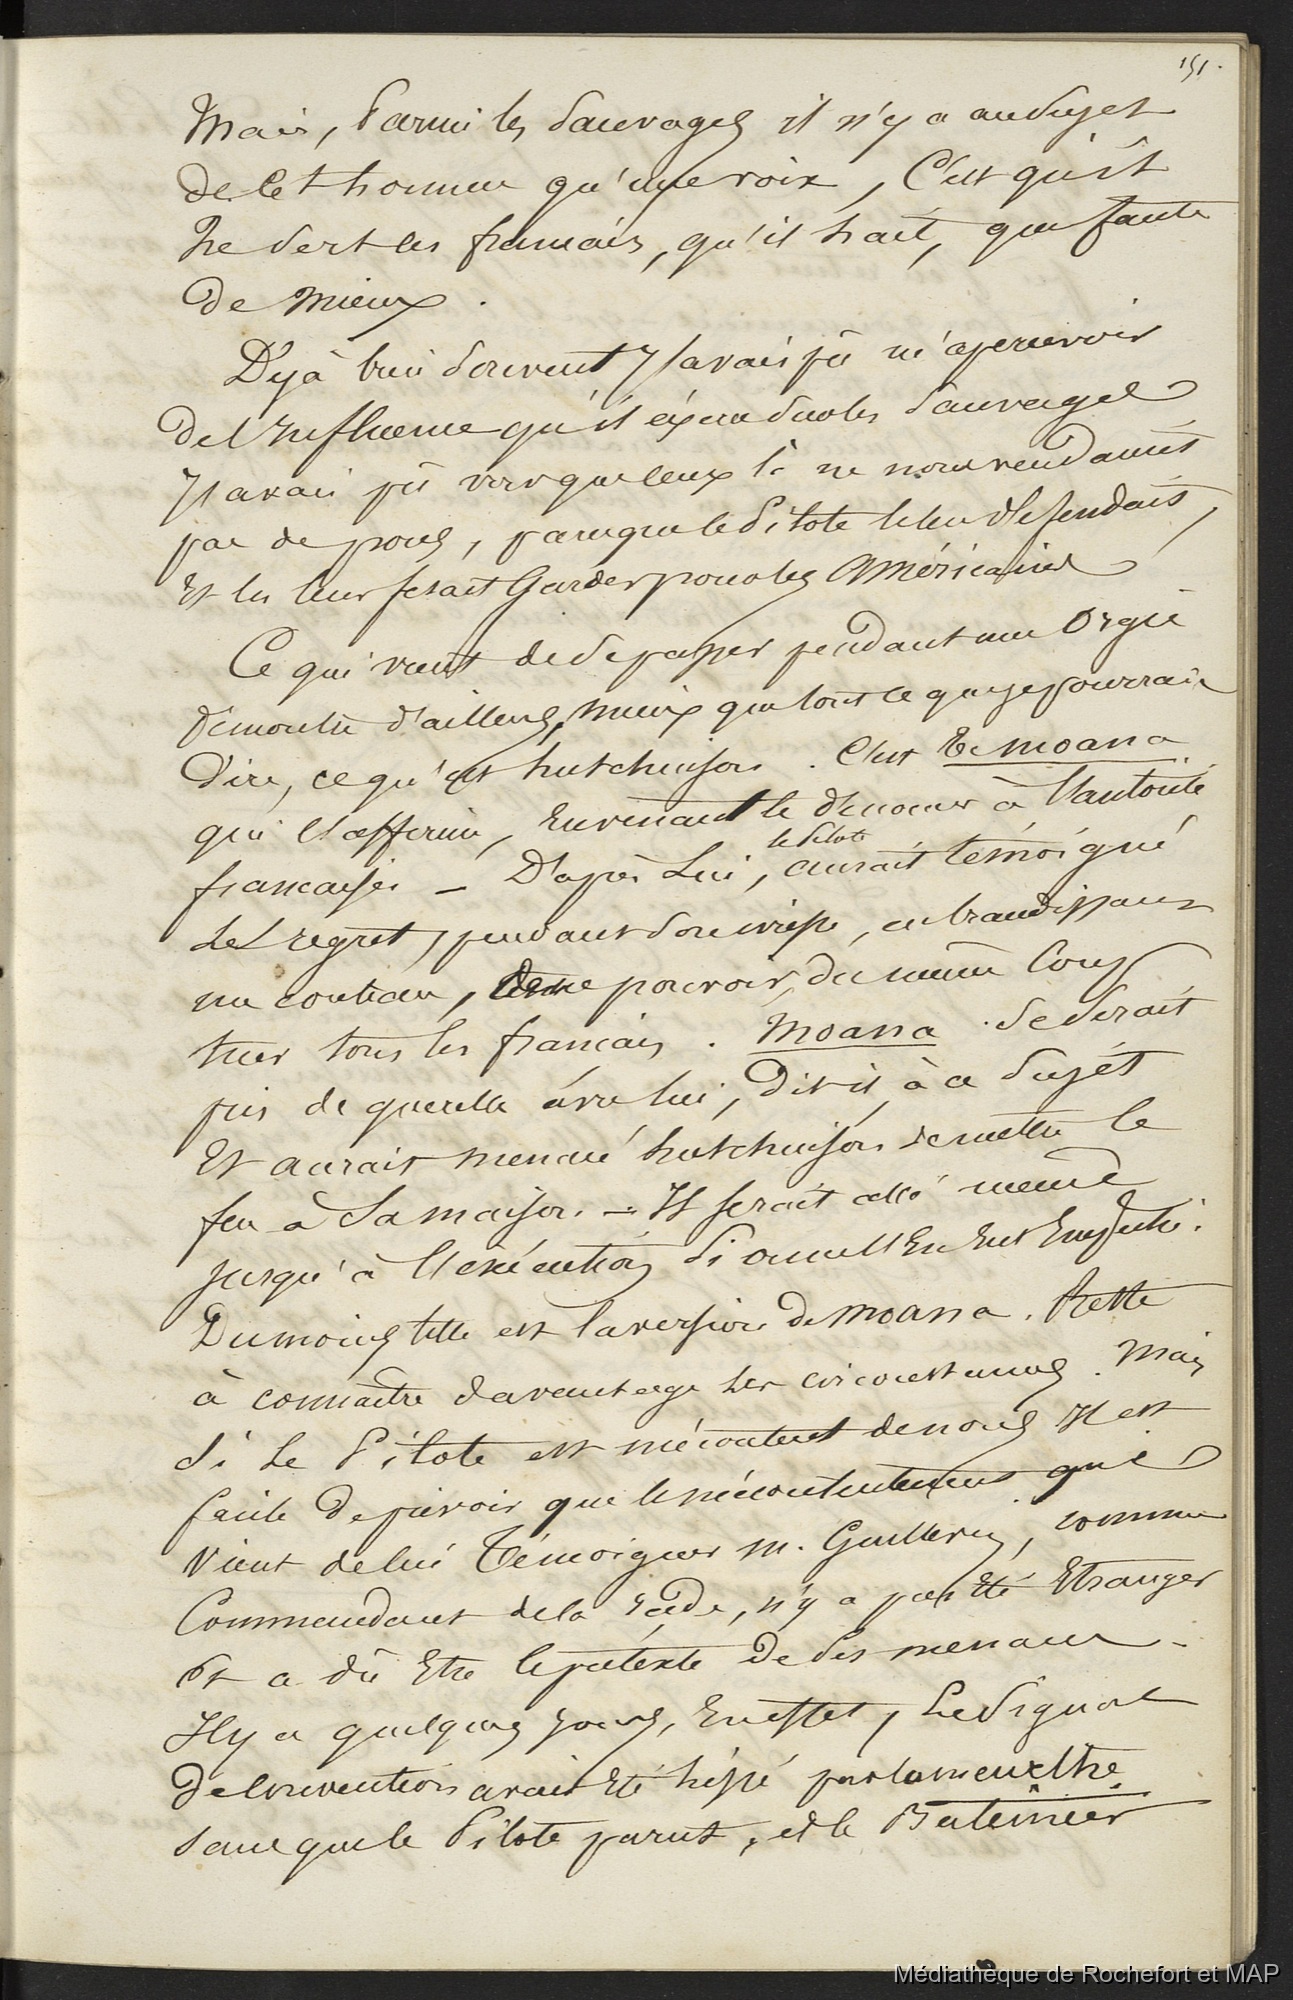 151.
Mais, parmi les sauvages il n'y a au sujet
de cet homme qu'une voix, C'est qu'il
ne sert les français, qu'il hait, que faute
de mieux.
Déjà bien souvent J'avais pû m'apercevoir
de l'Influence qu'il exerce sur les sauvages
J'avais pû voir que ceux là ne nous vendaient
pas de porcs, parceque le Pilote le leur défendait,
Et les leur fesait Garder pour les Américains
Ce qui vient de se passer pendant une Orgie
démontre d'ailleurs, mieux que tout ce que je pourrais
dire, ce qu'est hutchinson. C'est Te moana
qui l'affirme, En venant le dénoncer à l'autorité
française – D'après Lui, le Pilote aurait témoigné
le regret, pendant son ivresse, en brandissant
un couteau, de ne pouvoir, du même Coup
tuer tous les français. Moana se serait
pris de querelle avec lui, dit-il, à ce sujet
Et aurait menacé hutchinson de mettre le
feu à sa maison. – Il serait allé même
jusqu'à l'exécution si on ne l'En Eut Empêché.
Du moins telle est la version de Moana. Reste
à connaître davantage les circonstances. Mais
si le Pilote est mécontent de nous Il est
facile de prévoir que le mécontentement que
vient de lui Témoigner M. Guillevin, comme
Commandant de la rade, n'y a pas Eté Etranger
Et a dû Etre le prétexte de ses menaces.
Il y a quelques jours, En effet, Le Signal
de convention avait Eté hissé par la meurthe
sans que le Pilote parut, et le Batimeêr